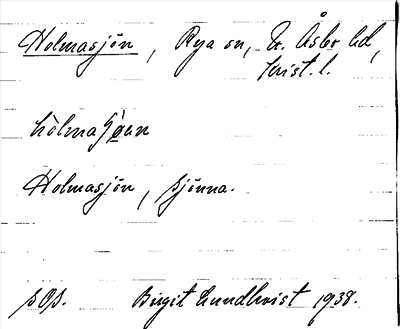 Holmasjön, Rya sn, N. Åsbo hd,
Krist. l.
Holmasjön, sjönna.
sOs. Birgit Lundkvist 1938.